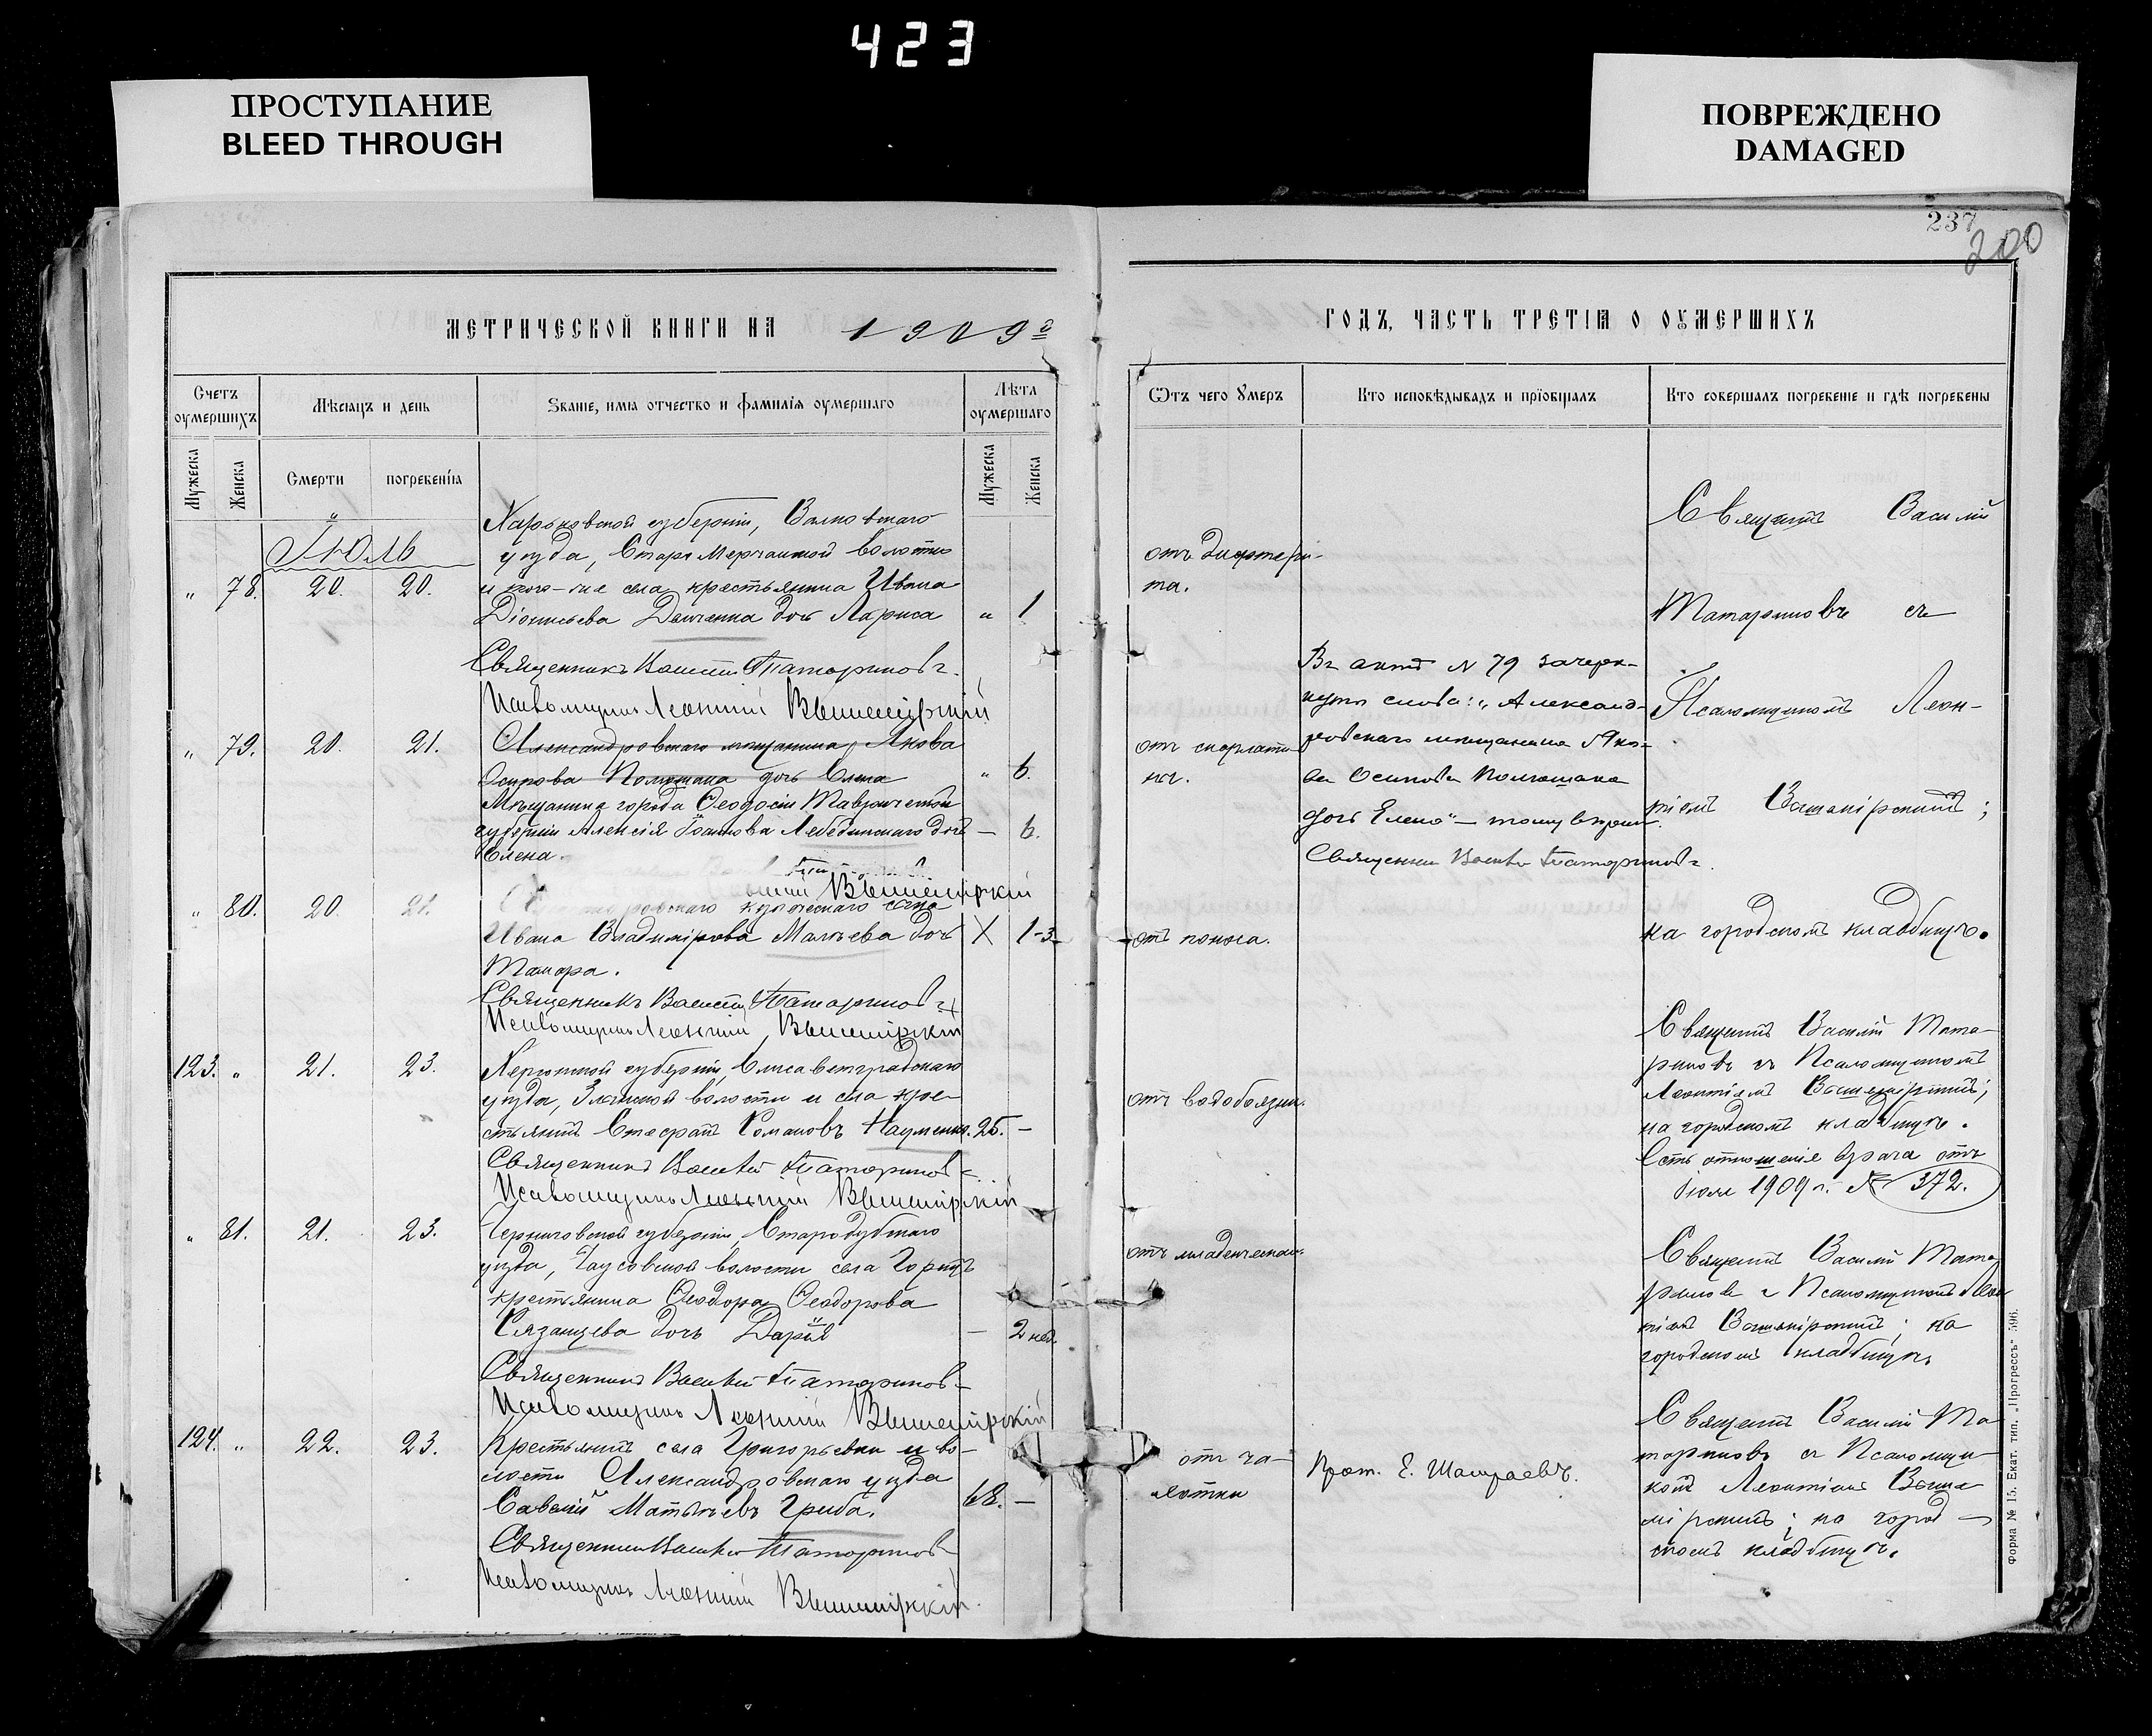 423
ПРОСТУПАНИЕ
BLEED THROUGH
ПОВРЕЖДЕНО
DAMAGED
237
200
МЕТРИЧЕСКОЙ КНИГИ НА 1909
Счетъ оумершихъ
Мѣсяцъ и день
Званіе, имя отчество и фамилія оумершаго
Лѣта оумершаго
Мужеска
Женска
Смерти
погребенія
Мужеска
Женска
Іюль
Харьковской губерніи, Валковскаго
уѣзда, Старо Мерчанской волости
" 78. 20. 20. и того-же села крестьянина Ивана
Діонисьева дочь Лариса " 1
Священникъ Василій Татариновъ.
Псаломщикъ Леонтій Вышемірскій
" 79. 20. 21. Александровскаго мѣщанина Якова
Осипова Полющака дочь Елена " 6.
Мѣщанина города Ѳеодосіи Таврической
губерніи Алексія Іоаннова Лебединскаго дочь — 6.
Елена.
Вышемірскій
" 80. 20. 21. купеческаго сына
Ивана Владимірова Малѣева дочь X 1-3
Тамара.
Священникъ Василій Татариновъ
Псаломщикъ Леонтій Вышемірскій
123. " 21. 23. Херсонской губерніи, Елисаветградскаго
уѣзда, волости и села кре-
стьянинъ Романовъ Науменко. 25. —
Священникъ Василій Татариновъ
Псаломщикъ Леонтій Вышемірскій
" 81. 21. 23. Черниговской губерніи, Стародубскаго
уѣзда, волости села
крестьянина Ѳеодора Ѳеодорова
Сязанцева дочь Дарія — 2 нед.
Священникъ Василій Татариновъ
Псаломщикъ Леонтій Вышемірскій
124. " 22. 23. Крестьянинъ села Григорьевки и во-
лости Александровскаго уѣзда
Савелій Матѳѣевъ Гриба. 68. —
Священникъ Василій Татариновъ
Псаломщикъ Леонтій Вышемірскій.
ГОДЪ, ЧАСТЬ ТРЕТІЯ О ОУМЕРШИХЪ
Ѿтъ чего Умеръ
Кто исповѣдывалъ и пріобщалъ
Кто совершалъ погребеніе и гдѣ погребены
отъ дифтери-
та.
отъ скарлати-
ны.
отъ поноса.
отъ водобоязни.
отъ младенческой
отъ ча-
хотки
Въ актѣ № 79 зачерк-
нуты слова: „Александ-
ровскаго мѣщанина Яко-
ва Осипова Полющака
дочь Елена" —
Священникъ Василій Татариновъ.
Прот. Е.
Священникъ Василій
Татариновъ съ
Псаломщикомъ Леон-
тіемъ Вышемірскимъ;
на городскомъ кладбищѣ.
Священникъ Василій Тата-
риновъ съ Псаломщикомъ
Леонтіемъ Вышемірскимъ;
на городскомъ кладбищѣ.
Есть отношеніе врача отъ
Іюля 1909 г. № 372.
Священникъ Василій Тата-
риновъ съ Псаломщикомъ Леон
тіемъ Вышемірскимъ; на
городскомъ кладбищѣ
Священникъ Василій Та
тариновъ съ Псаломщи-
комъ Леонтіемъ Выше
мірскимъ; на город-
скомъ кладбищѣ.
Форма № 15. Екат. тип. „Прогрессъ" 596.